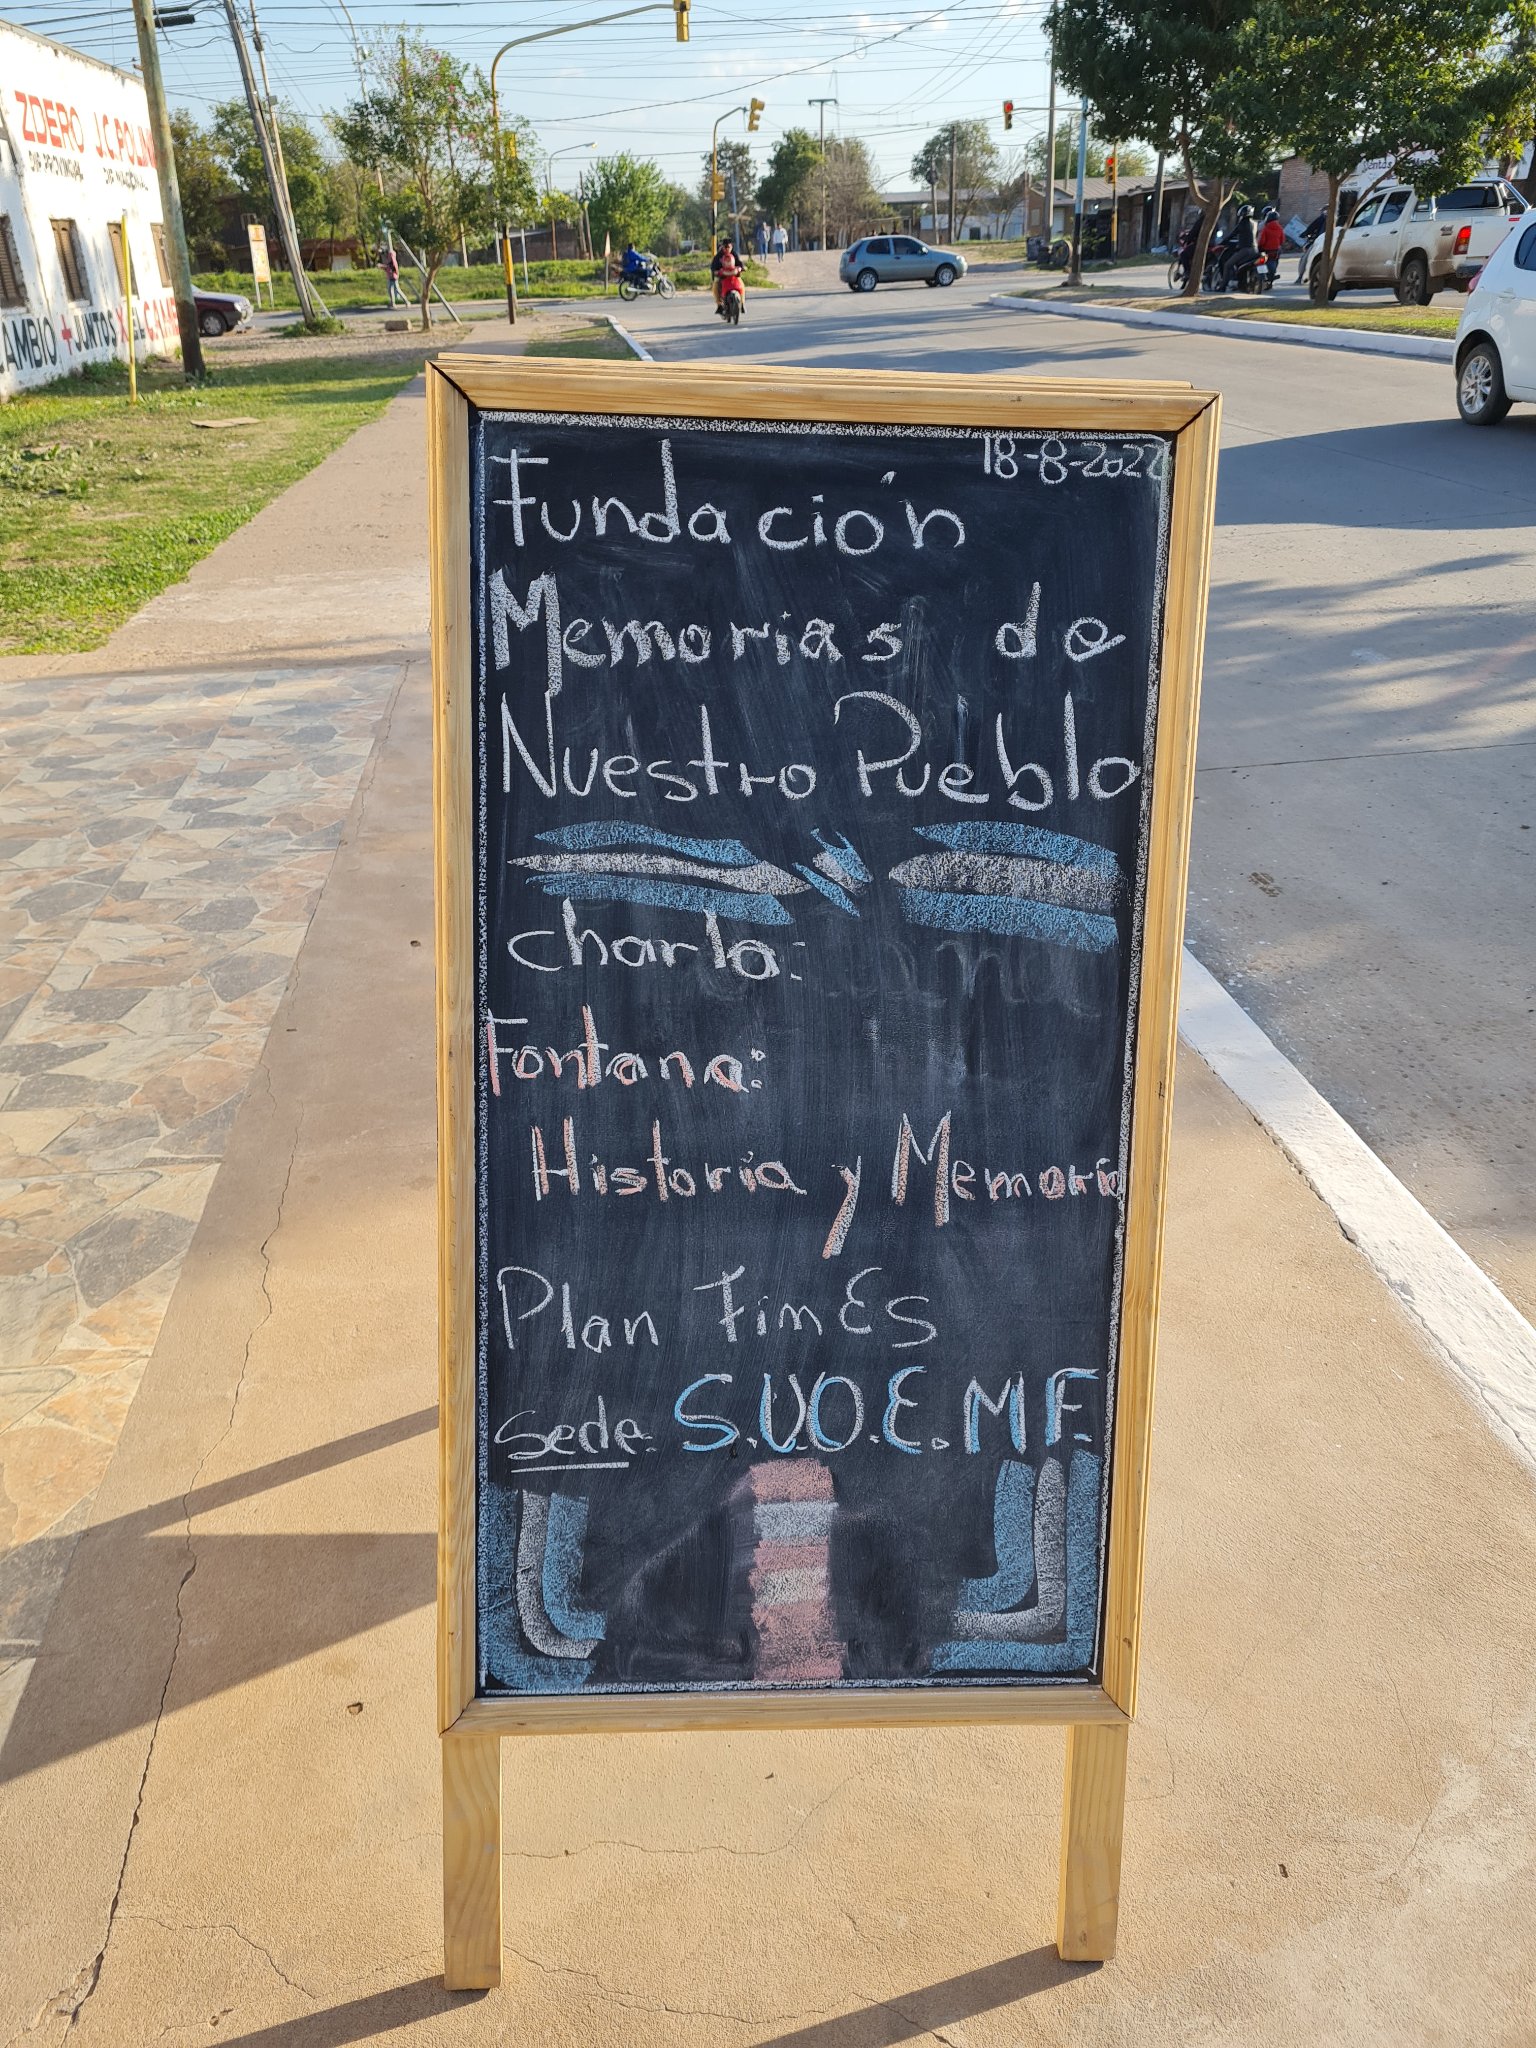 ZDERO J.C. POLIN
DIP. PROVINCIAL DIP. NACIONAL
CAMBIO + JUNTOS X EL CAMB
18-8-2022
Fundación
Memorias de
Nuestro Pueblo
Charla:
Fontana:
Historia y Memoria
Plan FinEs
Sede: S.U.O.E.M F.